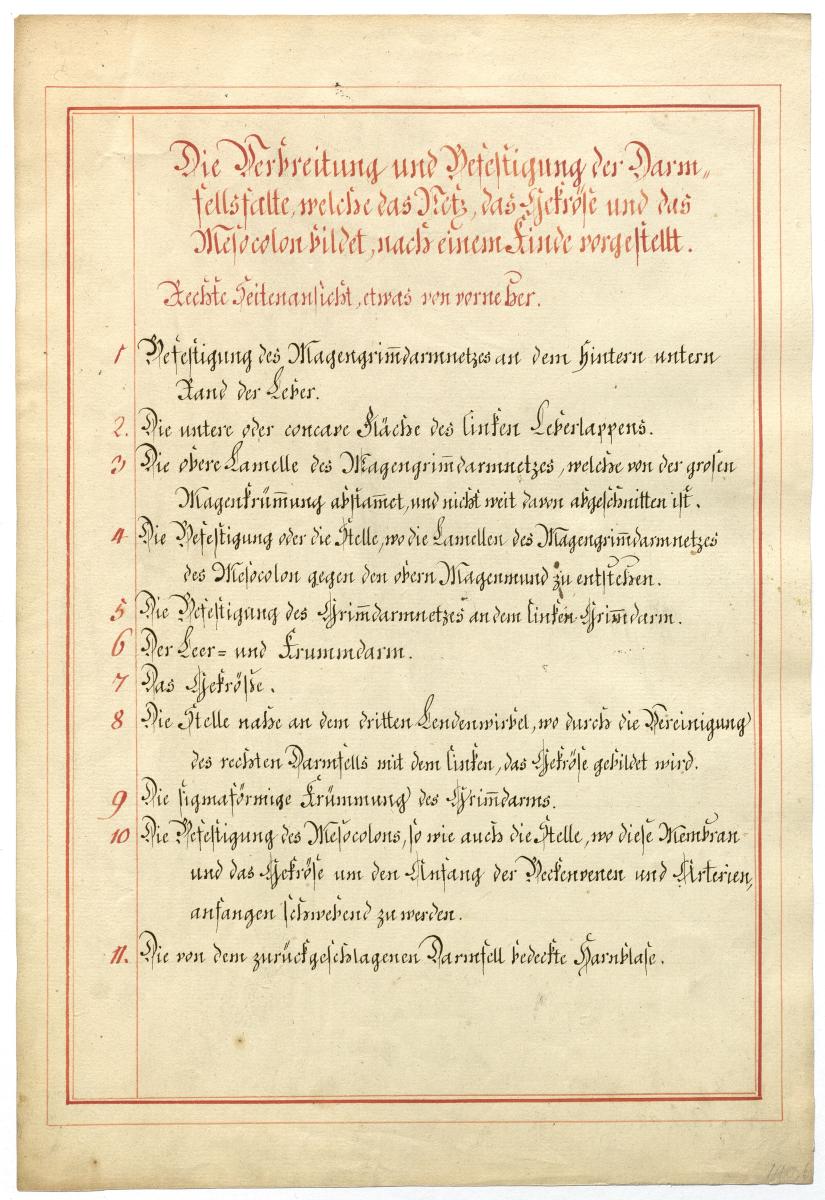 Die Verbreitung und Befestigung der Darm„
fellsfalte, welche das Netz, das Gekröse und das
Mesocolon bildet, nach einem Kinde vorgestellt.
Rechte Seitenansicht, etwas von vorne her.
1 Befestigung des Magengrim̅darmnetzes an dem hintern untern
Rand der Leber.
2. Die untere oder concave Fläche des linken Leberlappens.
3 Die obere Lamelle des Magengrim̅darmnetzes, welche von der grosen
Magenkrüm̅ung abstam̅et, und nicht weit davon abgeschnitten ist.
4 Die Befestigung oder die Stelle, wo die Lamellen des Magengrim̅darmnetzes
des Mesocolon gegen den obern Magenmund zu entstehen.
5 Die Befestigung des Grim̅darmnetzes an dem linken Grim̅darm.
6 Der Leer= und Krummdarm.
7 Das Gekröße.
8 Die Stelle nahe an dem dritten Lendenwirbel, wo durch die Vereinigung
des rechten Darmfells mit dem linken, das Gekröse gebildet wird.
9 Die sigmaförmige Krümmung des Grim̅darms.
10 Die Befestigung des Mesocolons, so wie auch die Stelle, wo diese Membran
und das Gekröse um den Anfang der Beckenvenen und Arterien,
anfangen schwebend zu werden.
11. Die von dem zurückgeschlagenen Darmfell bedeckte Harnblase.